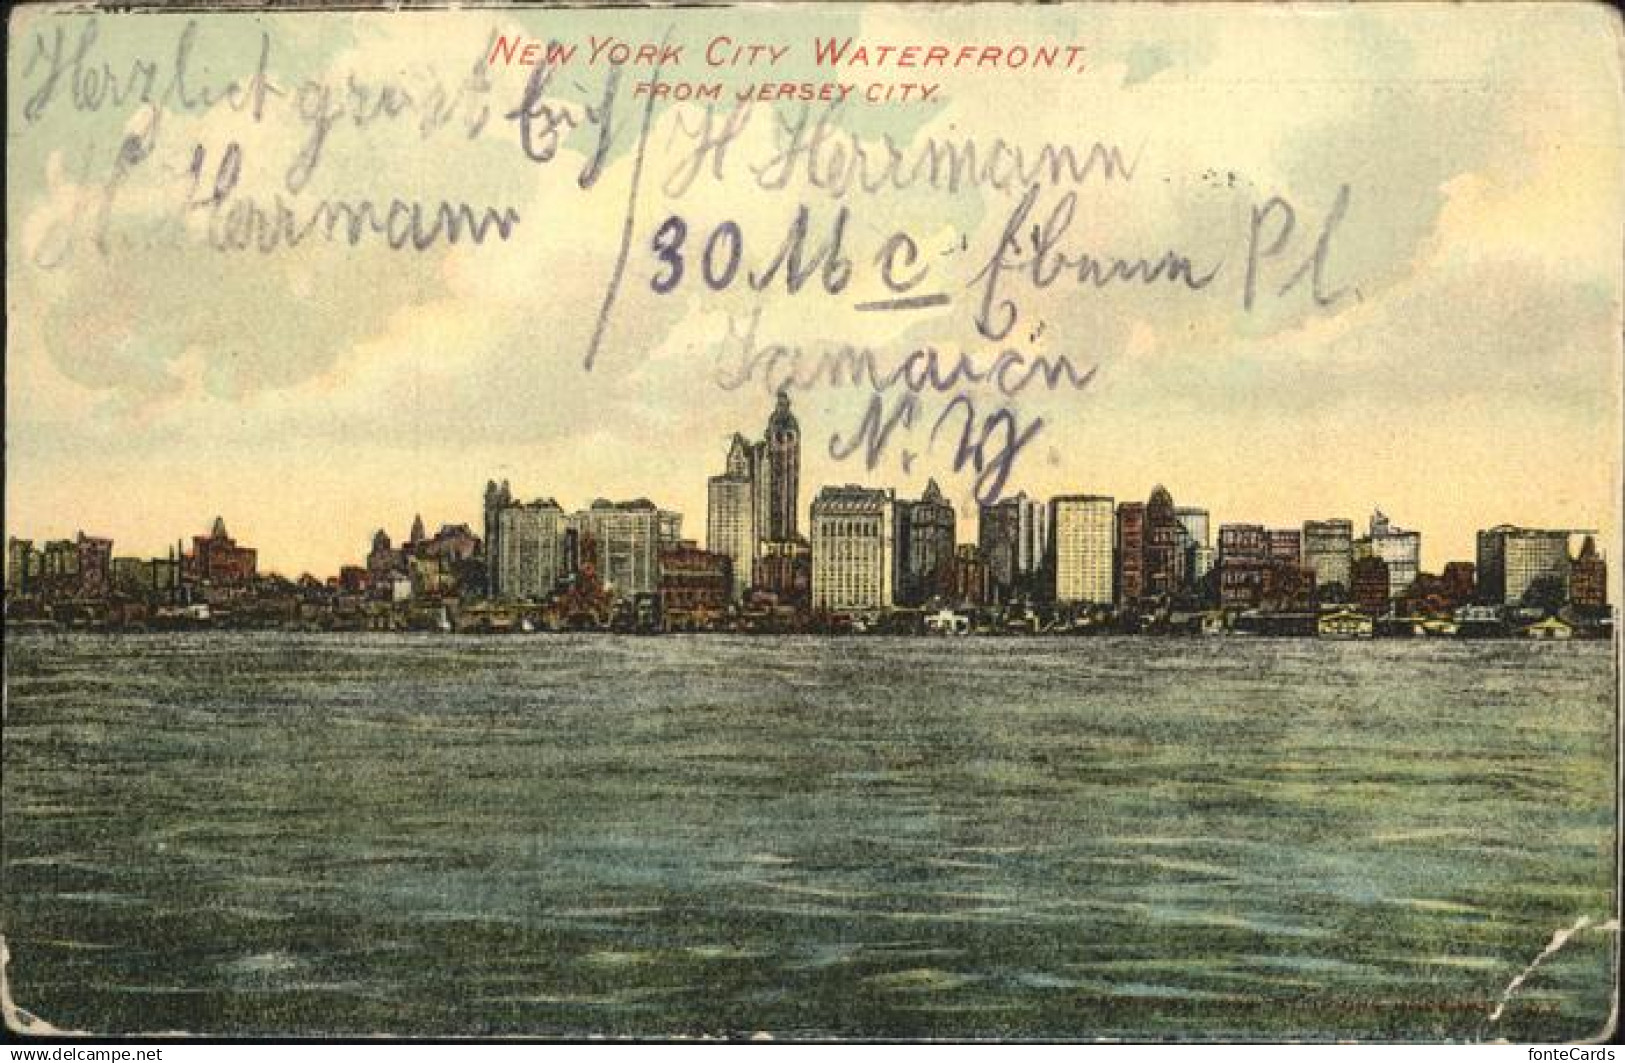 NEW YORK CITY WATERFRONT,
FROM JERSEY CITY.
Herzlich grüst Euch
H. Herrmann
H Herrmann
30 Mc Pl.
Jamaica
N. Y.
www.delcampe.net
fonteCards